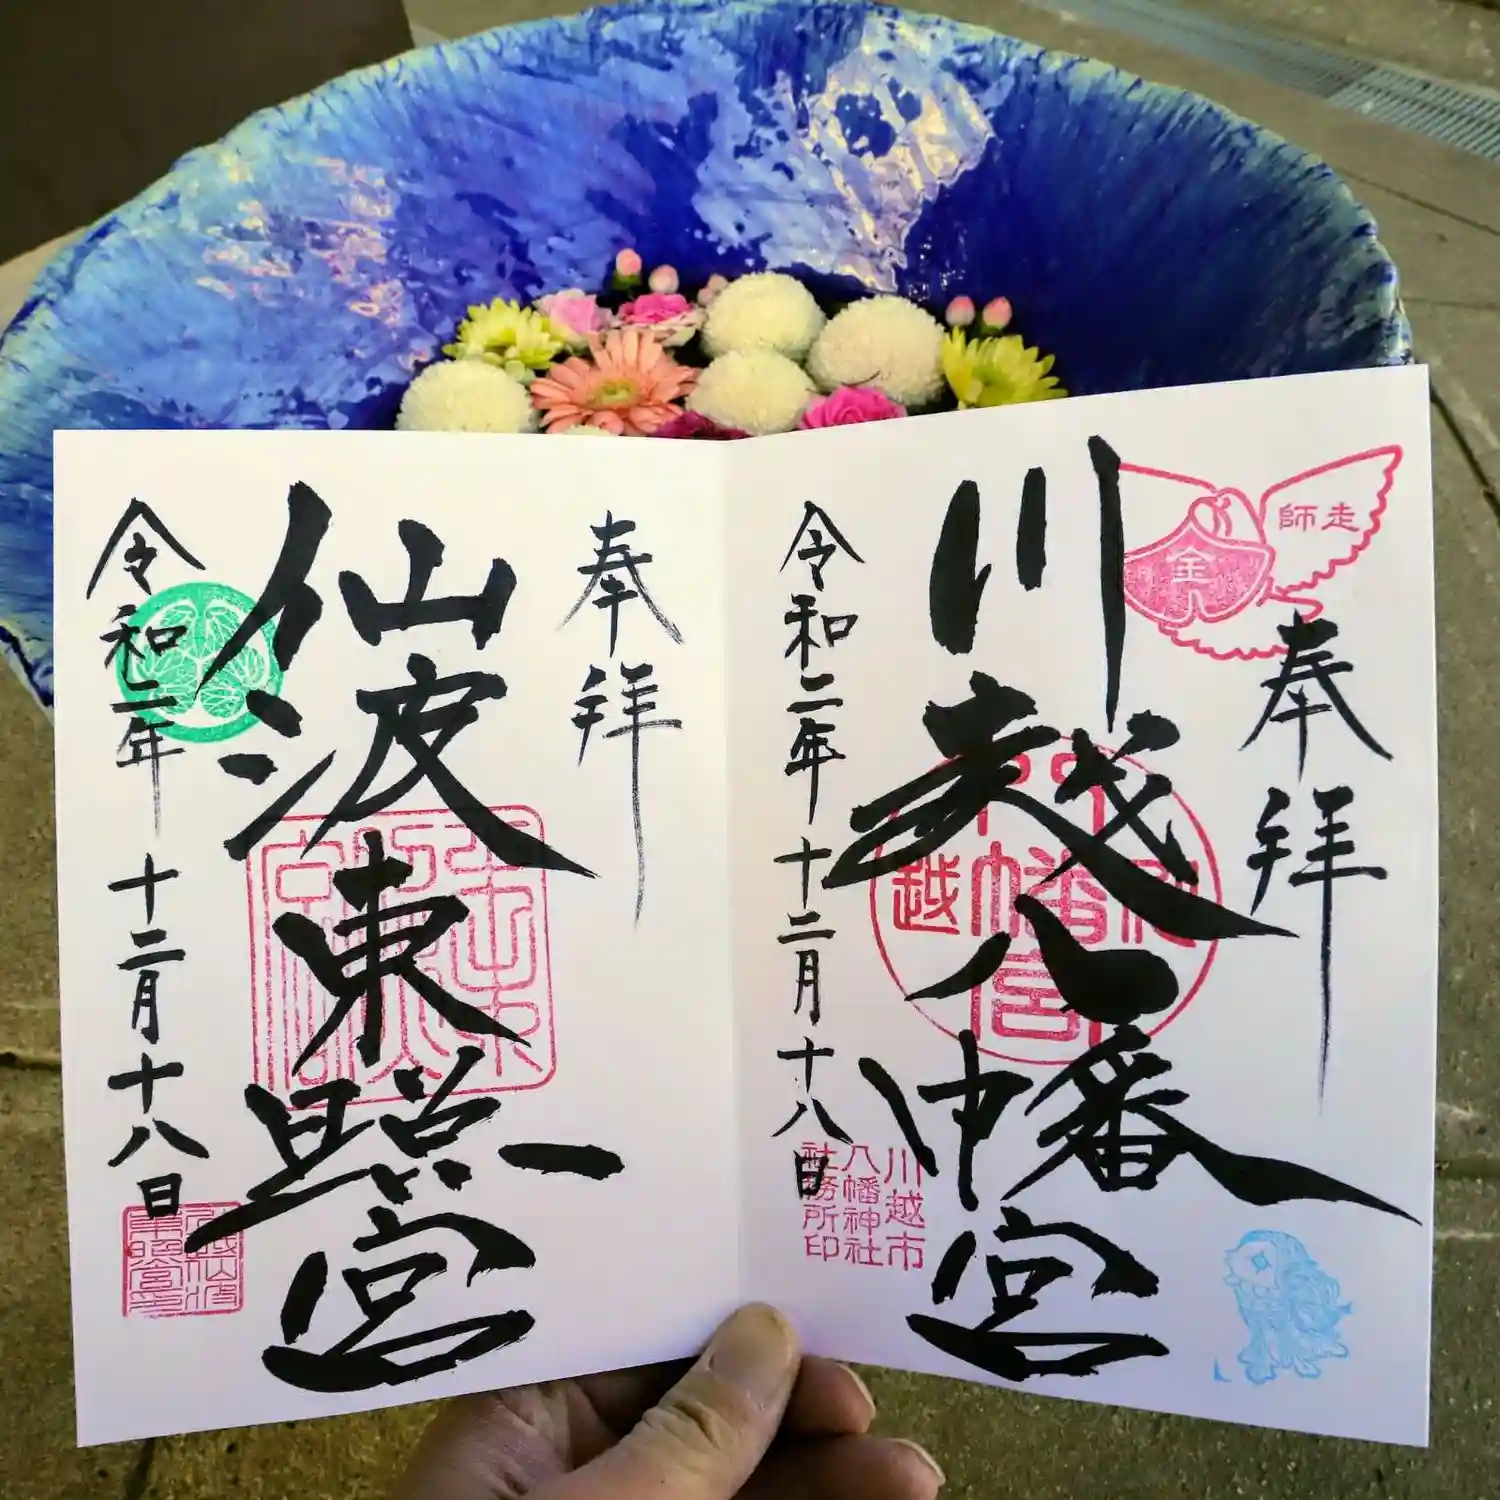 奉拝
川越八幡宮
令和二年 十二月十八日
師走
金
川越市
八幡神社
社務所印
奉拝
仙波東照宮
令和二年 十二月十八日